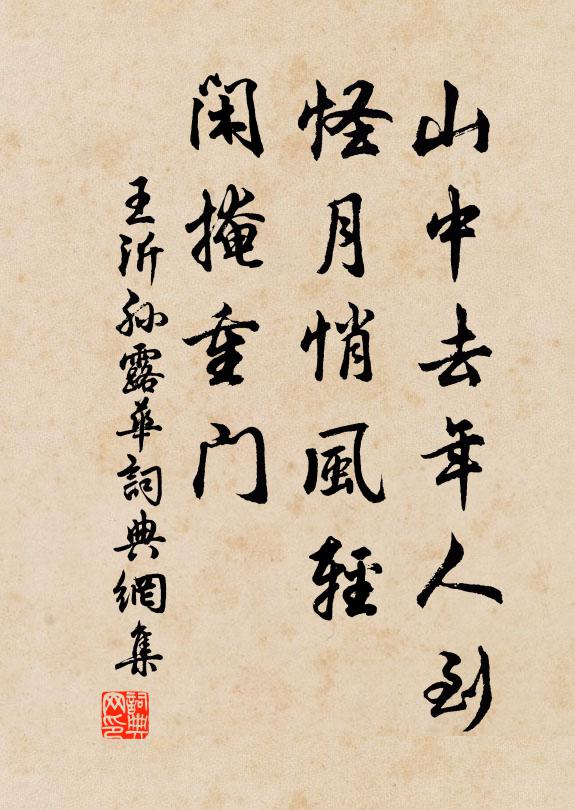 山中去年人到
怪月悄風輕
閑掩重門
王沂孫露華詞典網集
詞典网印